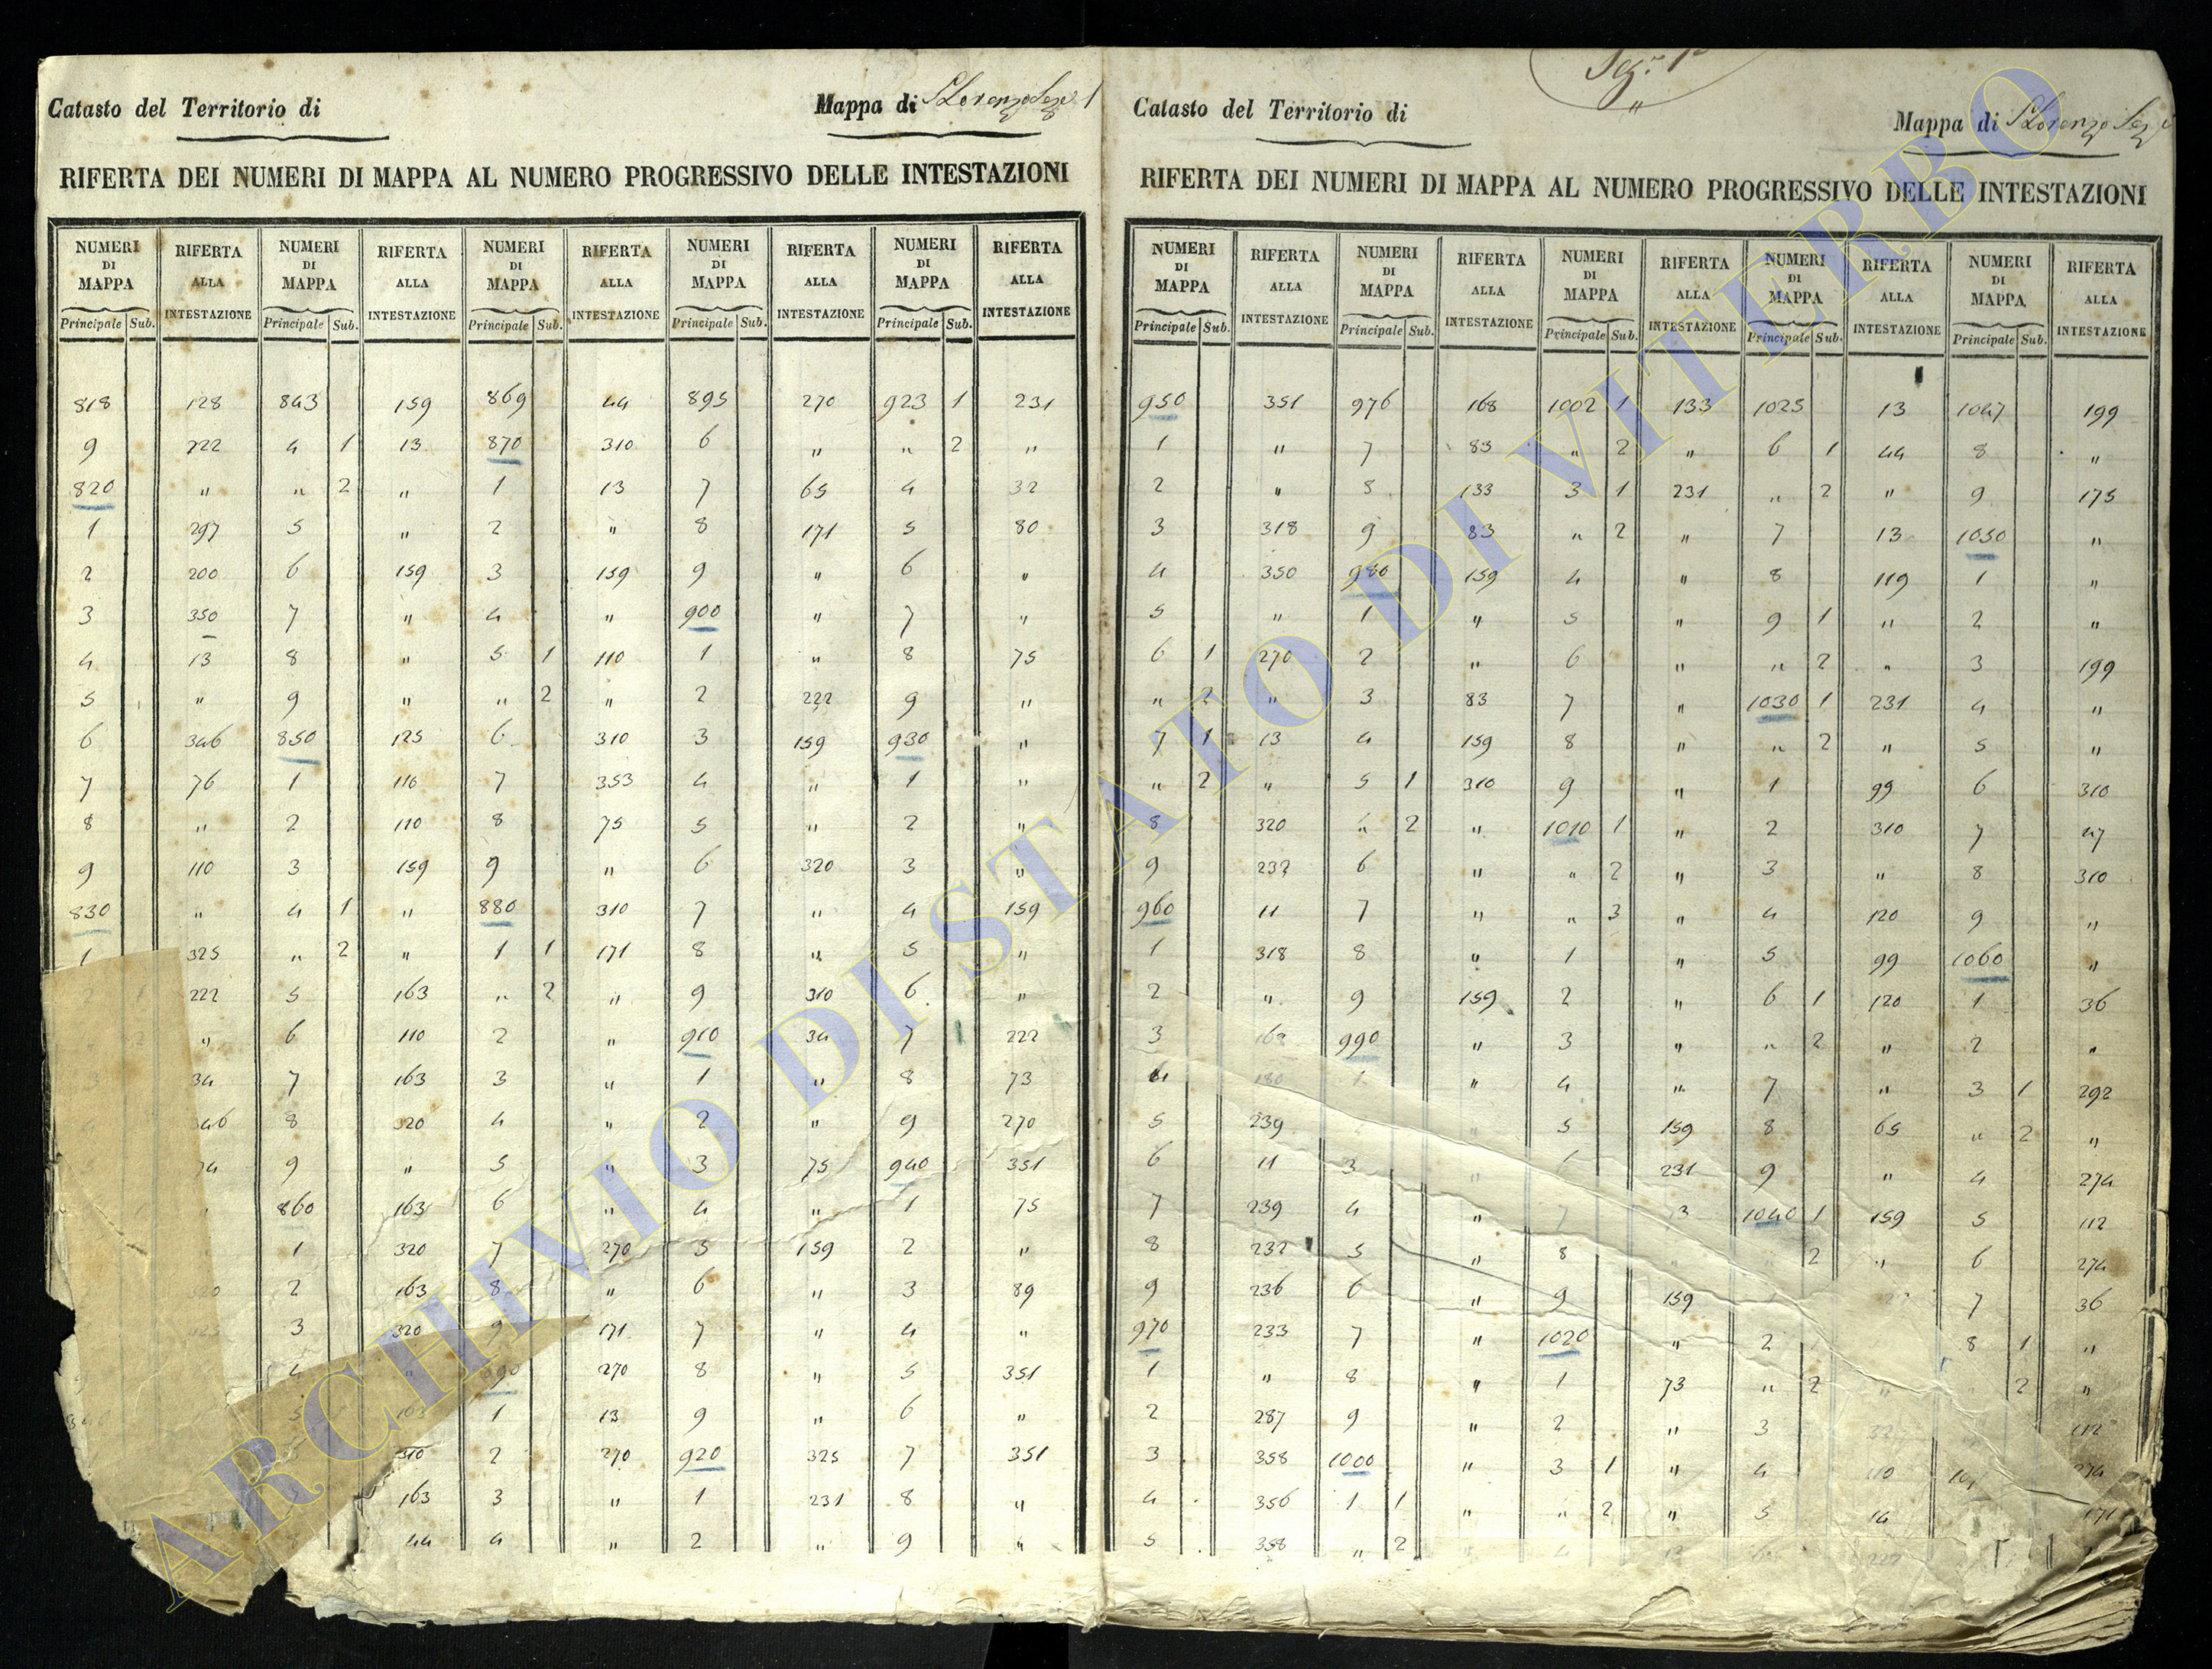 Catasto del Territorio di
Mappa di S Lorenzo Sez. 1
RIFERTA DEI NUMERI DI MAPPA AL NUMERO PROGRESSIVO DELLE INTESTAZIONI
NUMERI RIFERTA NUMERI RIFERTA NUMERI RIFERTA NUMERI RIFERTA NUMERI RIFERTA
DI DI DI DI DI
MAPPA ALLA MAPPA ALLA MAPPA ALLA MAPPA ALLA MAPPA ALLA
Principale Sub. INTESTAZIONE Principale Sub. INTESTAZIONE Principale Sub. INTESTAZIONE Principale Sub. INTESTAZIONE Principale Sub. INTESTAZIONE
818 128 843 159 869 44 895 270 923 1 231
9 222 4 1 13 870 310 6 " " 2 "
820 " " 2 " 1 13 7 65 4 32
1 297 5 " 2 " 8 171 5 80
2 200 6 159 3 159 9 " 6 "
3 350 7 " 4 " 900 " 7 "
4 13 8 " 5 1 110 1 " 8 75
5 " 9 " " 2 " 2 222 9 "
6 346 850 125 6 310 3 159 930 "
7 76 1 116 7 353 4 " 1 "
8 " 2 110 8 75 5 " 2 "
9 110 3 159 9 " 6 320 3 "
830 " 4 1 " 880 310 7 " 4 159
1 325 " 2 " 1 1 171 8 " 5 "
222 5 163 " 2 " 9 310 6 "
" 6 110 2 " 910 34 7 222
34 7 163 3 " 1 " 8 73
8 320 4 " 2 " 9 270
9 " 5 " 3 75 940 351
860 163 6 " 4 " 1 75
1 320 7 270 5 159 2 "
2 163 8 " 6 " 3 89
3 320 9 171 7 " 4 "
4 " 890 270 8 " 5 351
5 163 1 13 9 " 6 "
310 2 270 920 325 7 351
163 3 " 1 231 8 "
44 4 " 2 " 9 "
Sez. 1ª
Catasto del Territorio di
Mappa di S Lorenzo Sez
RIFERTA DEI NUMERI DI MAPPA AL NUMERO PROGRESSIVO DELLE INTESTAZIONI
NUMERI RIFERTA NUMERI RIFERTA NUMERI RIFERTA NUMERI RIFERTA NUMERI RIFERTA
DI DI DI DI DI
MAPPA ALLA MAPPA ALLA MAPPA ALLA MAPPA ALLA MAPPA ALLA
Principale Sub. INTESTAZIONE Principale Sub. INTESTAZIONE Principale Sub. INTESTAZIONE Principale Sub. INTESTAZIONE Principale Sub. INTESTAZIONE
950 351 976 168 1002 1 133 1025 13 1047 199
1 " 7 83 " 2 " 6 1 44 8 "
2 " 8 133 3 1 231 " 2 " 9 175
3 318 9 83 " 2 " 7 13 1050 "
4 350 980 159 4 " 8 119 1 "
5 " 1 " 5 " 9 1 " 2 "
6 1 270 2 " 6 " " 2 " 3 199
" 2 " 3 83 7 " 1030 1 231 4 "
7 1 13 4 159 8 " " 2 " 5 "
" 2 " 5 1 310 9 " 1 99 6 310
8 320 " 2 " 1010 1 " 2 310 7 47
9 232 6 " " 2 " 3 " 8 310
960 11 7 " " 3 " 4 120 9 "
1 318 8 " 1 " 5 99 1060 "
2 " 9 159 2 " 6 1 120 1 36
3 990 " 3 " " 2 " 2 "
4 180 1 " 4 " 7 " 3 1 292
5 239 5 159 8 65 " 2 "
6 11 3 231 9 " 4 274
7 239 4 " 1040 1 159 5 112
8 232 5 " 8 2 " 6 274
9 236 6 " 9 159 7 36
970 233 7 " 1020 " 2 8 1 "
1 " 8 " 1 73 " 2 2 "
2 287 9 " 2 " 3 112
3 358 1000 " 3 1 " 4 110 274
4 356 1 1 " " 2 " 5 14 171
5 358 " 2
ARCHIVIO DI STATO DI VITERBO